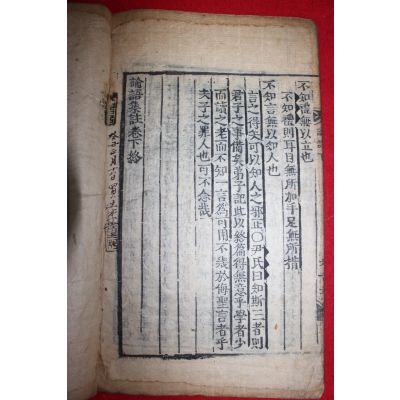 不知禮無以立也
不知禮則耳目無所加手足無所措
不知言無以知人也
言之得失可以知人之邪正○尹氏曰知斯三者則
君子之事備矣弟子記此以終篇得無意乎學者少
而讀之老而不知一言爲可用不幾於侮聖言者乎
夫子之罪人也可不念哉
論語集註卷下終